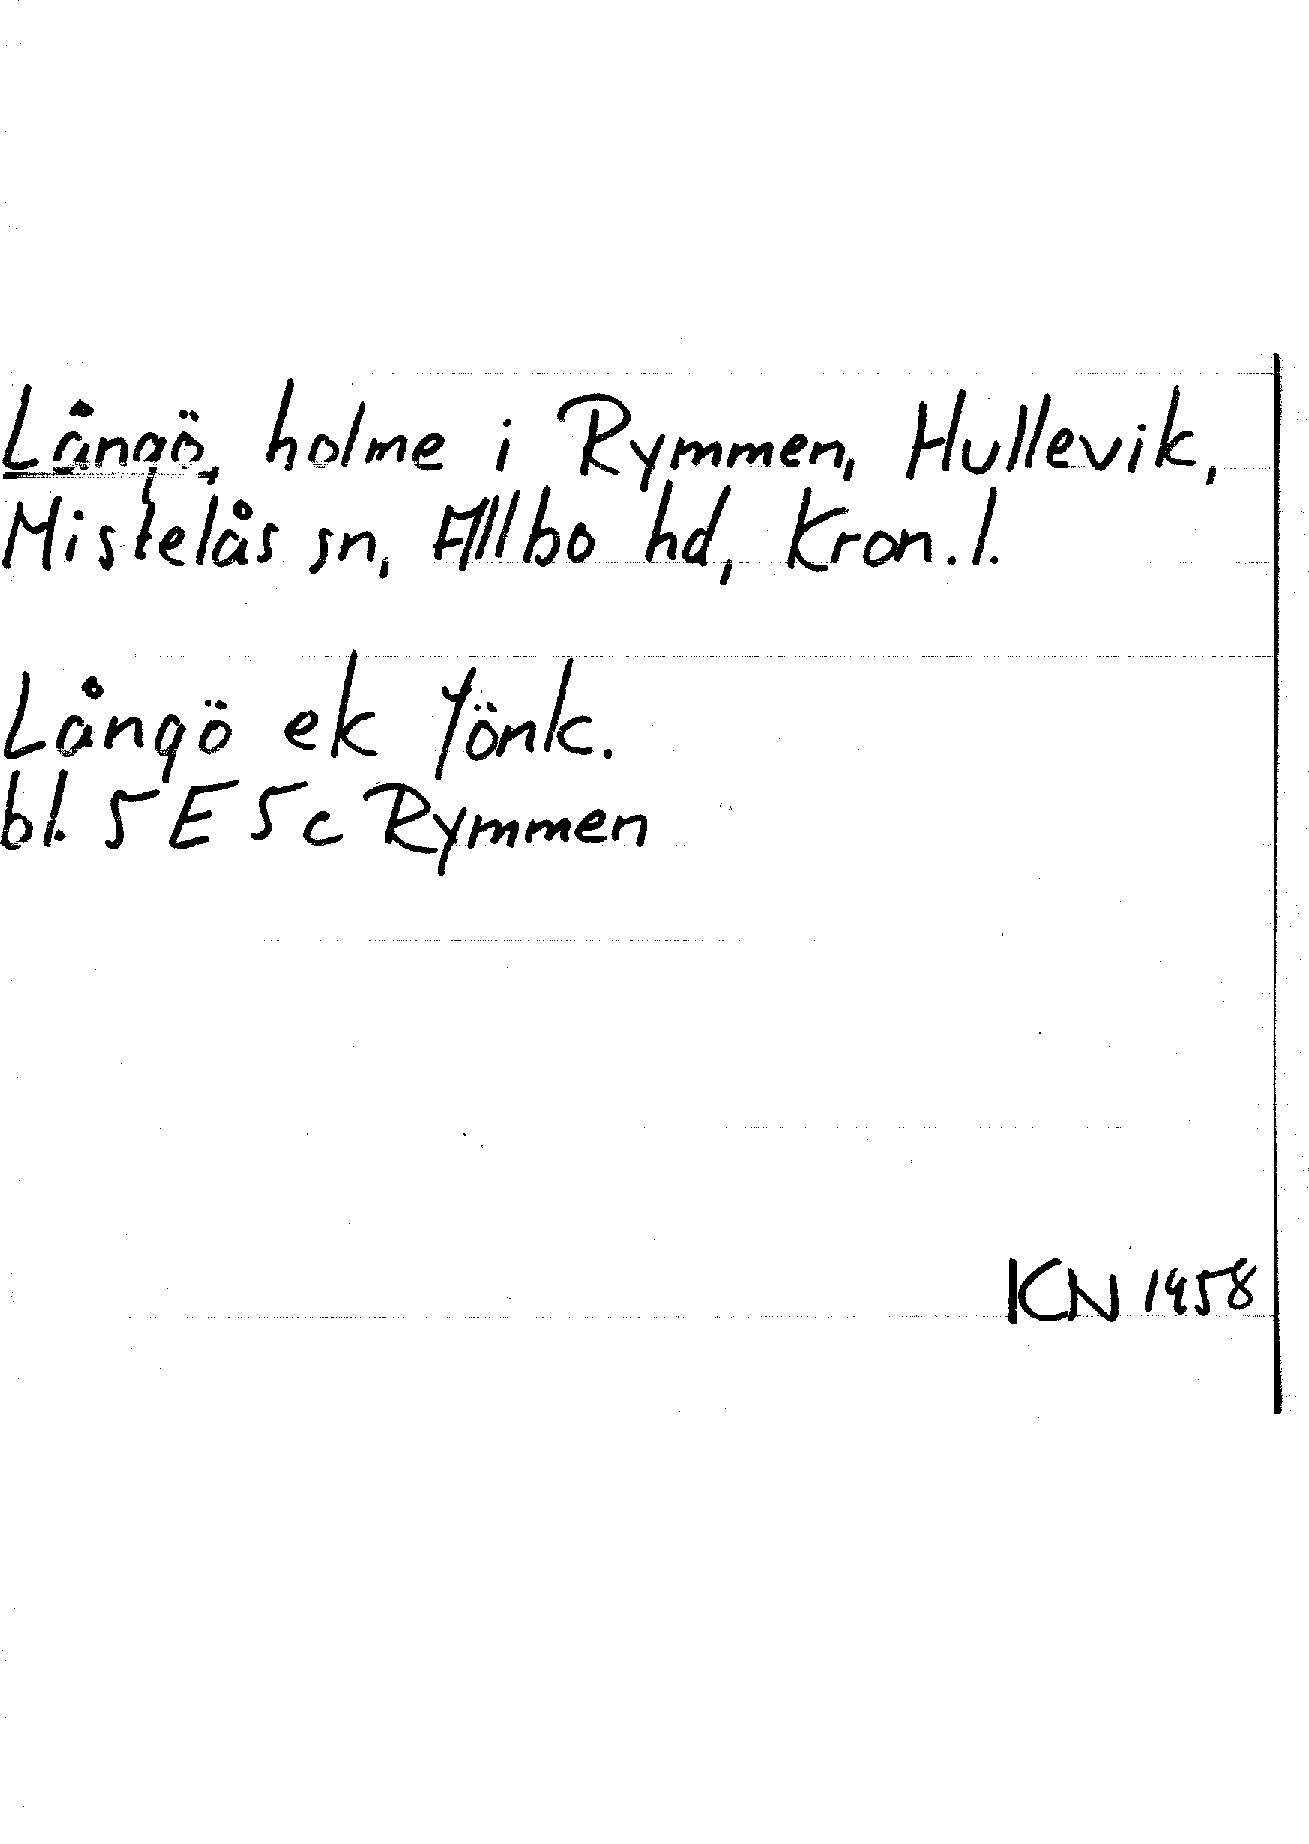 Långö, holme i Rymmen, Hullevik,
Mistelås sn, Allbo hd, Kron.l.
Långö ek Jönk.
bl. 5 E 5 c Rymmen
KN 1958